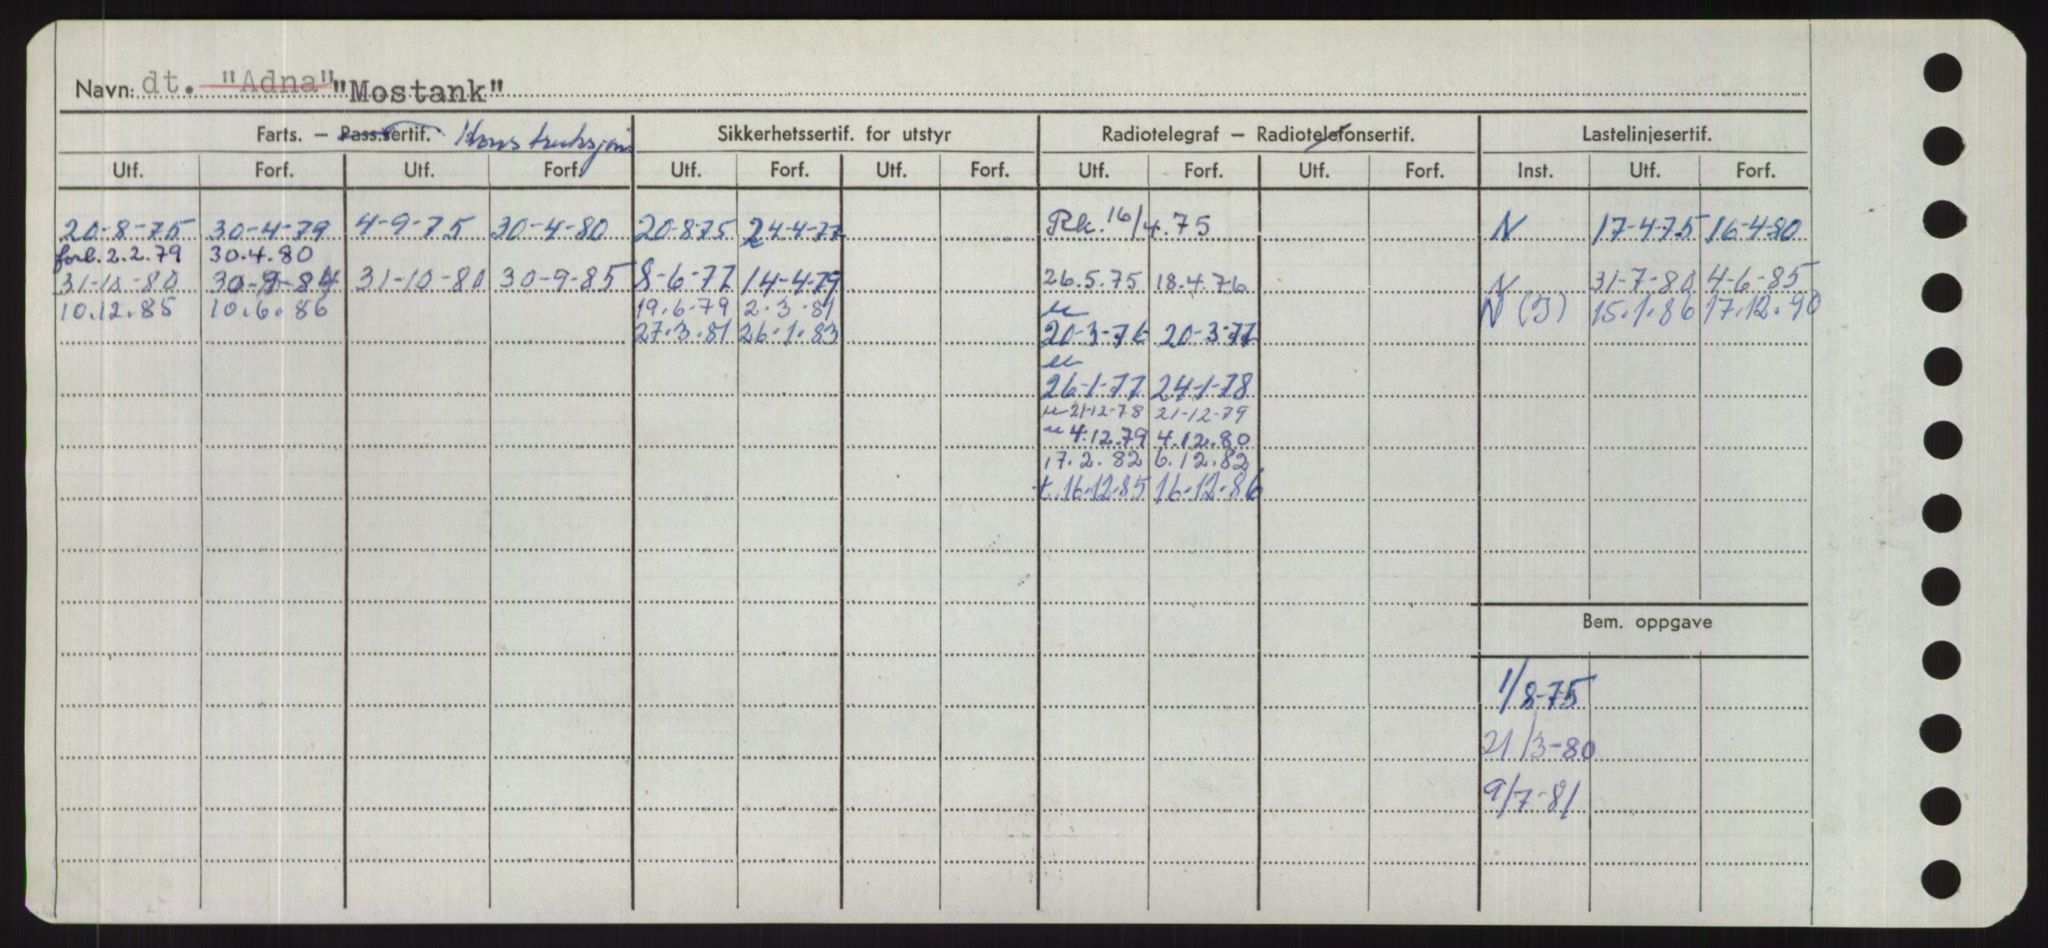 Navn: dt. "Adna" "Mostank"
Farts. — Pass.sertif. Konstruksjons Sikkerhetssertif. for utstyr Radiotelegraf — Radiotelefonsertif. Lastelinjesertif.
Utf. Forf. Utf. Forf. Utf. Forf. Utf. Forf. Utf. Forf. Utf. Forf. Inst. Utf. Forf.
20-8-75 30-4-79 4-9-75 30-4-80 20-8-75 24-4-77 Rk. 16/4.75 N 17-4-75 16-4-80
forl. 2.2.79 30.4.80
31-10-80 30-9-84 31-10-80 30-9-85 8-6-77 14-4-79 26.5.75 18.4.76 N 31-7-80 4-6-85
10.12.85 10.6.86 19.6-79 2.3.81 u N (I) 15.1.86 17.12.90
27.3.81 26.1.83 20-3-76 20-3-77
u
26-1-77 24-1-78
u 21-12-78 21-12-79
u 4.12.79 4.12.80
17.2.82 6.12.82
t. 16.12.85 16.12.86
Bem. oppgave
1/8-75
21/3-80
9/7-81